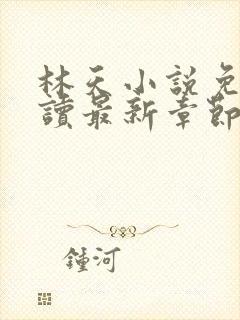 林天小說免
讀最新章節
鍾河